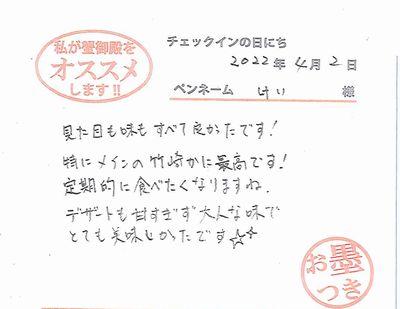 私が蟹御殿を
オススメ
します!!
チェックインの日にち
2022年4月2日
ペンネーム けい 様
見た目も味もすべて良かったです!
特にメインの竹崎かに最高です!
定期的に食べたくなりますね。
デザートも甘すぎず大人な味で
とても美味しかったです☆☆
お墨
つき